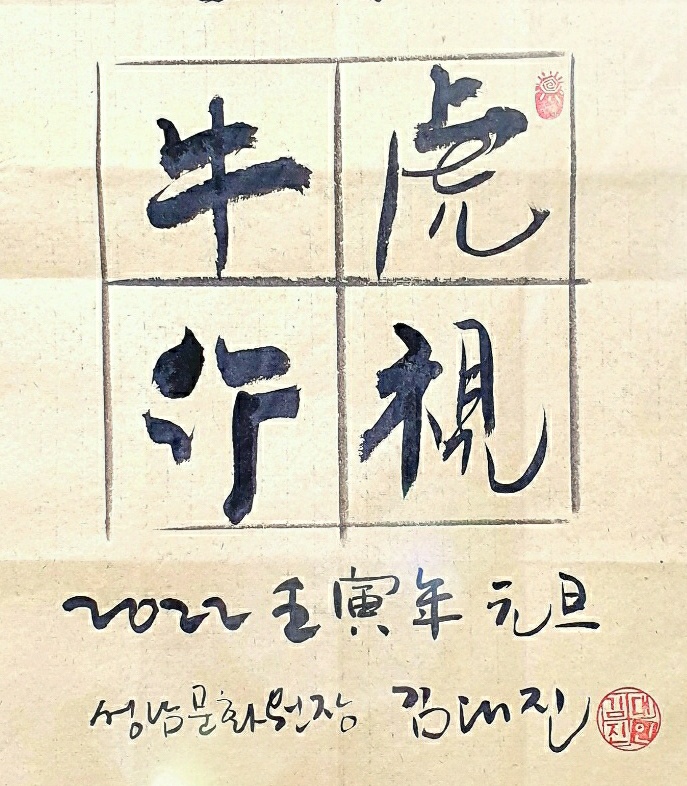 虎視
牛行
2022 壬寅年 元旦
성남문화원장 김대진
김대진인